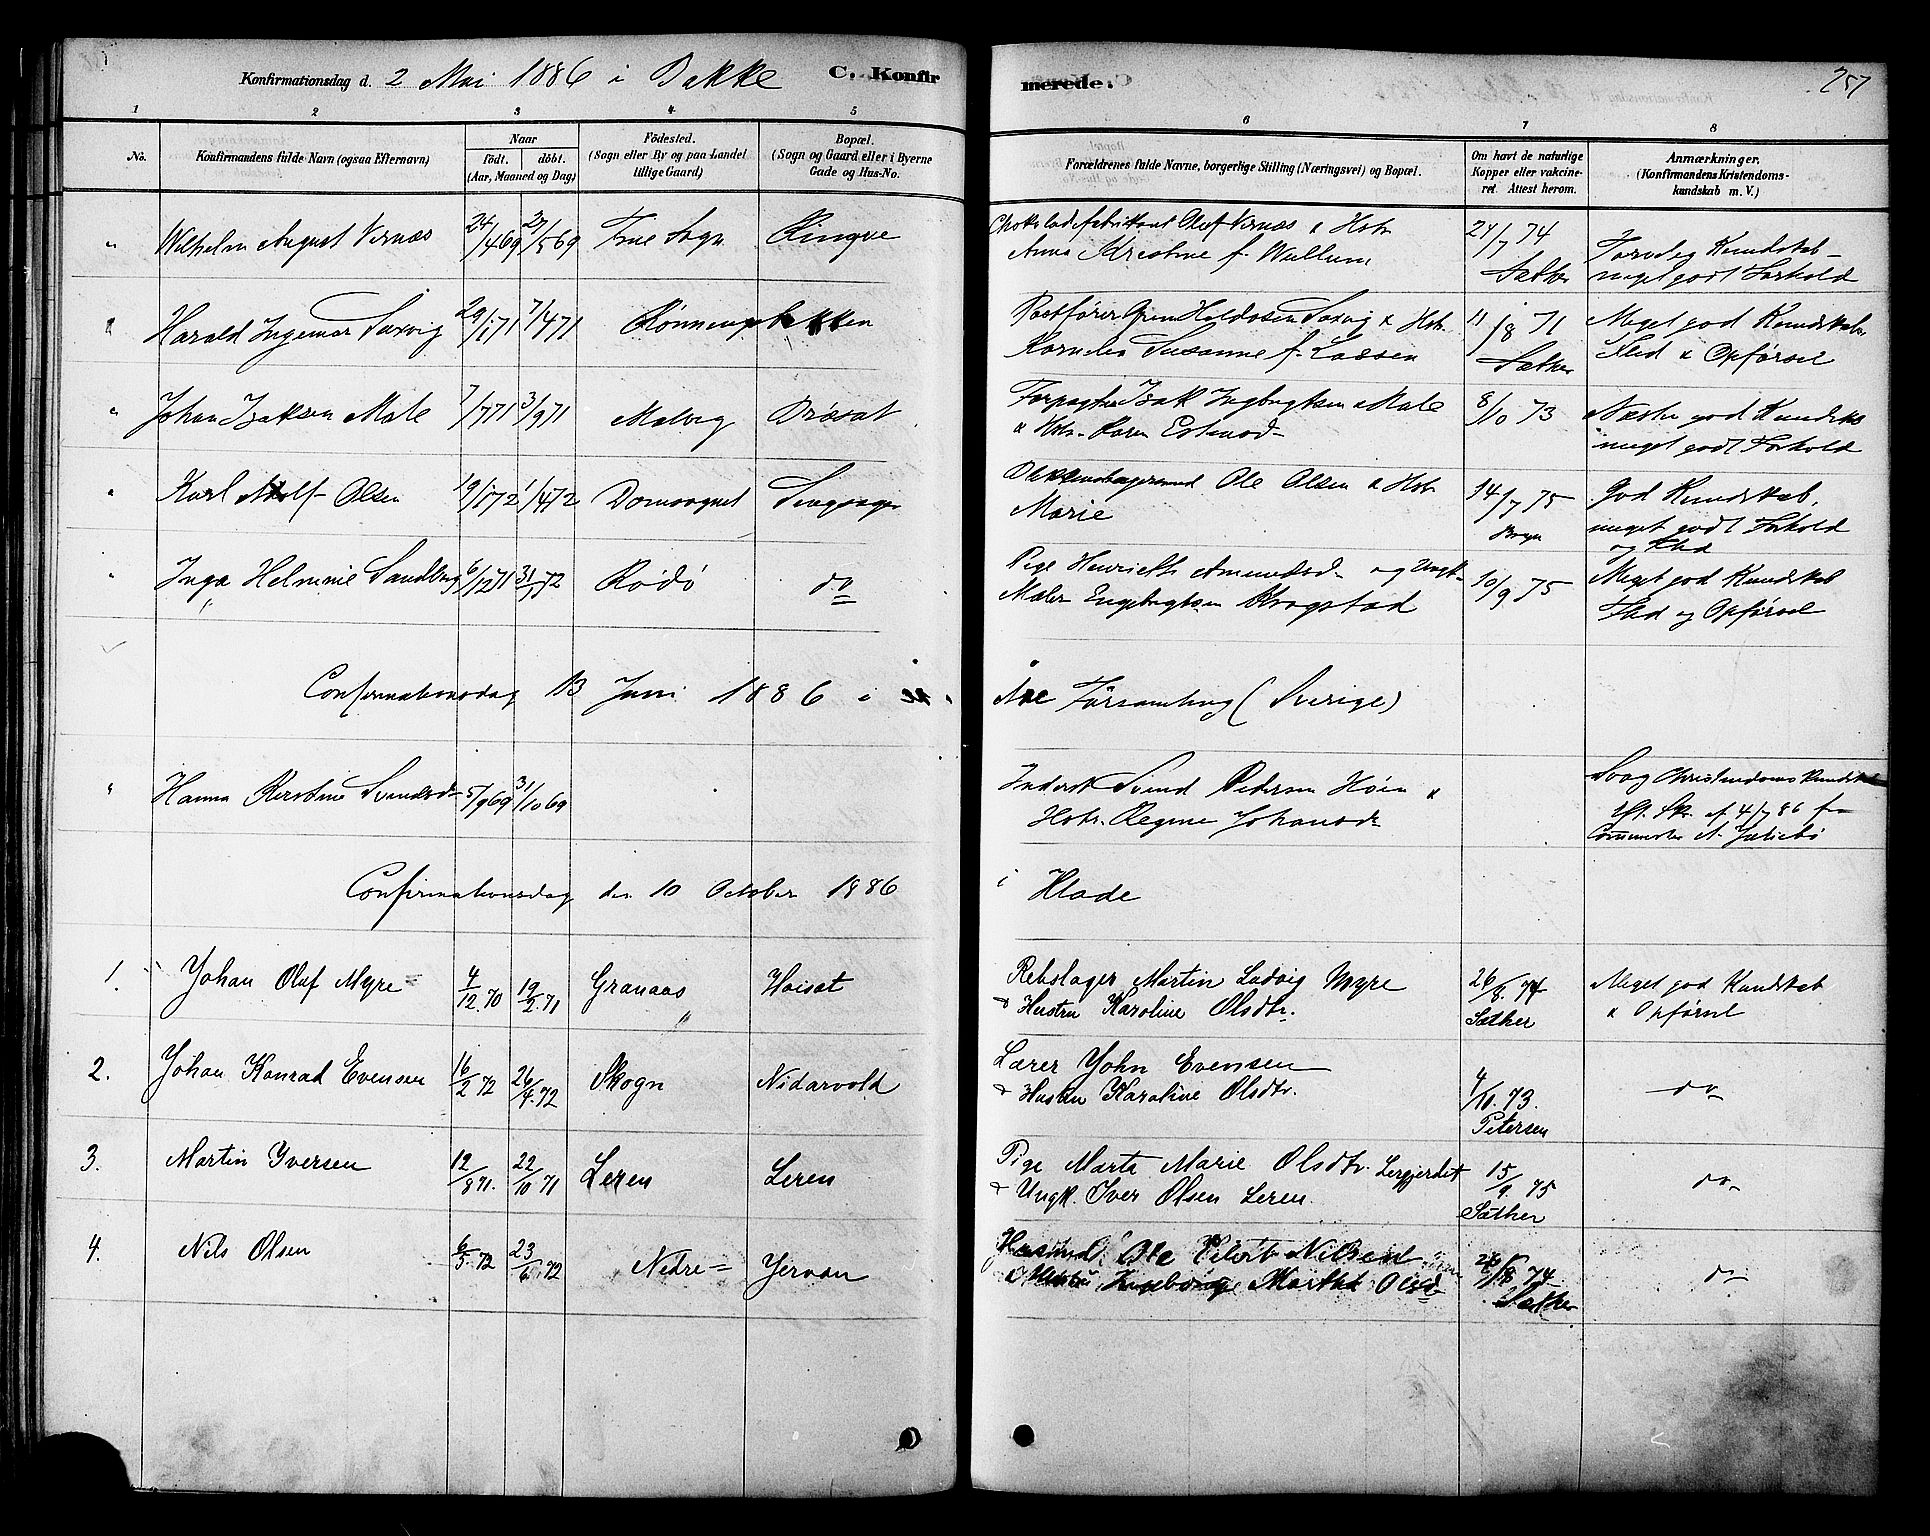 Konfirmationsdag d. 2 Mai 1886 i Bakke C. Konfir
merede. 257
1 2 3 4 5 6 7 8
No. Konfirmandens fulde Navn (ogsaa Efternavn) Naar födt. döbt. (Aar, Maaned og Dag) Födested. (Sogn eller By og paa Landet tillige Gaard) Bopæl. (Sogn og Gaard eller i Byerne Gade og Hus-No. Forældrenes fulde Navne, borgerlige Stilling (Næringsvei) og Bopæl. Om havt de naturlige Kopper eller vakcineret. Attest herom. Anmærkninger. (Konfirmandens Kristendomskundskab m. V.)
" Wilhelm August Vernæs 24/4 69 27/5 69 Frue Sogn Ringve Chokoladefabrikant Oluf Vernæs & Hstr 24/7 74
Anna Kristine f. Wullum Sæther meget godt Forhold
" Harald Ingemar Saxvig 29/1 71 7/4 71 Rönningsbakken Postfører Hst. 11/8 71 Meget god Kundskab
Kornelia Susanne f. Sæther Flid & Opførsel
" Johan Isaksen Male 7/7 71 3/9 71 Malvig Forpagter Isak Ingbrigtsen Male 8/10 73 Næsten god Kundsk
& Hstr. Karen Estensd. meget godt Forhold
" Karl Olsen 19/1 72 1/4 72 Domsognet Ole Olsen & Hstr 14/7 75 god Kundskab,
Marie Bryn meget godt Forhold
og Flid
" Inga Helmine Sandberg 6/12 71 31/1 72 Rödö do Pige Henriette Amundsd. og Ungk. 10/9 75 Meget god Kundskab
Maler Engebrigtsen Krogstad Flid og Opførsel
Confirmationsdag 13 Juni 1886 i Åre Församling (Sverige)
" Hanna Kerstine Svendsd. 5/9 69 31/10 69 Inderst Svend Pedersen Höin & Svag Christendoms Kundskab
Hstr. Regine Johansd. af 4/7 86 fra
Confirmationsdag den 10 October 1886 i Hlade
1. Johan Oluf Myre 4/12.70 19/2.71 Granaas Haiset Rebslager Martin Ludvig Myre 26/8.74 Meget god Kundskab
& Hustru Karoline Olsdtr. Sæther & Opførsel
2. Johan Konrad Evensen 16/2 72 26/4.72 Skogn Nidarvold Lærer John Evensen 4/10.73. do
& Hustru Karoline Olsdtr. Petersen
3. Martin Iversen 12/8 71. 22/10 71 Leren Leren Pige Marta Marie Olsdtr. Lergjerdet 15/9.75 do
& Ungk. Iver Olsen Leren. Sæther
4. Nils Olsen 6/5.72 23/6.72 Nedre = Jervan Husmd. Ole Nilsen 26/8 74 do
& Hustru Ingeborg Martha Olsd. Sæther